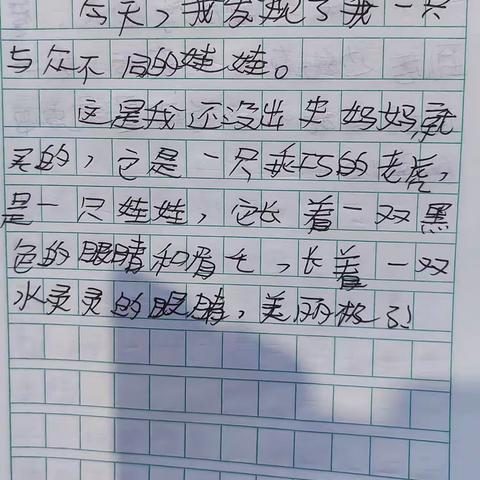 今天,我发现了我一只
与众不同的娃娃。
这是我还没出生妈妈就
买的,它是一只乖巧的老虎,
是一只娃娃,它长着一双黑
色的眼睛和眉毛,长着一双
水灵灵的眼睛,美丽极了!